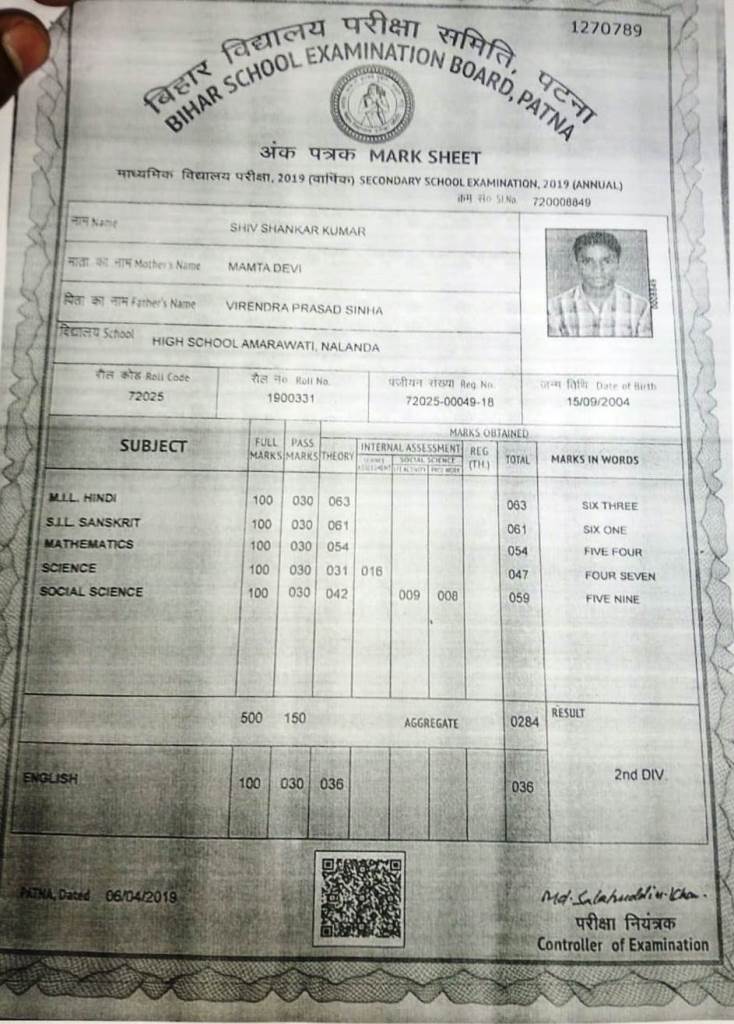 1270789
बिहार विद्यालय परीक्षा समिति, पटना
BIHAR SCHOOL EXAMINATION BOARD, PATNA
अंक पत्रक MARK SHEET
माध्यमिक विद्यालय परीक्षा, 2019 (वार्षिक) SECONDARY SCHOOL EXAMINATION, 2019 (ANNUAL)
क्रम सं० Sl.No. 720008849
नाम Name SHIV SHANKAR KUMAR
माता का नाम Mother's Name MAMTA DEVI
पिता का नाम Father's Name VIRENDRA PRASAD SINHA
विद्यालय School HIGH SCHOOL AMARAWATI, NALANDA
रौल कोड Roll Code रौल न० Roll No. पंजीयन संख्या Reg. No. जन्म तिथि Date of Birth
72025 1900331 72025-00049-18 15/09/2004
SUBJECT FULL MARKS PASS MARKS MARKS OBTAINED
THEORY INTERNAL ASSESSMENT REG (TH.) TOTAL MARKS IN WORDS
SCIENCE ASSESSMENT SOCIAL SCIENCE
M.I.L. HINDI 100 030 063 063 SIX THREE
S.I.L. SANSKRIT 100 030 061 061 SIX ONE
MATHEMATICS 100 030 054 054 FIVE FOUR
SCIENCE 100 030 031 016 047 FOUR SEVEN
SOCIAL SCIENCE 100 030 042 009 008 059 FIVE NINE
500 150 AGGREGATE 0284 RESULT
ENGLISH 100 030 036 036 2nd DIV.
PATNA, Dated 06/04/2019
Md. Salahuddin Khan.
परीक्षा नियंत्रक
Controller of Examination